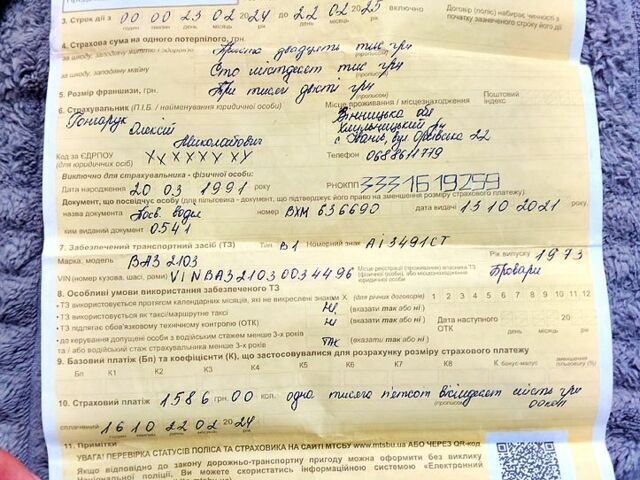 3. Строк дії з 00 00 23 02 2024 до 22 02 2025 включно Договір (поліс) набирає чинності з
годин хвилин день місяць року день місяць року початку зазначеного строку його дії
4. Страхова сума на одного потерпілого, грн.
за шкоду, заподіяну життю і здоров'ю Триста двадцять тис грн
за шкоду, заподіяну майну Сто шістдесят тис грн
(прописом)
5. Розмір франшизи, грн. Три тисячі двісті грн
(прописом)
6. Страхувальник (П.І.Б. / найменування юридичної особи) Місце проживання / місцезнаходження Поштовий індекс
Гончарук Вінницька обл
Олексій Хмільницький
Миколайович
Код за ЄДРПОУ XXXXXXXX Телефон
(для юридичних осіб)
Виключно для страхувальника - фізичної особи:
Дата народження 20 03 1991 року РНОКПП 3331619759
день місяць
Документ, що посвідчує особу (для пільговика - документ, що підтверджує його право на зменшення розміру страхового платежу).
назва документа Посв. водія номер ВХМ 636690 дата видачі 13 10 2021 року
ким виданий документ 0541
7. Забезпечений транспортний засіб (ТЗ) Тип B1 Номерний знак АІ3491СТ
Марка, модель ВАЗ 2103 Рік випуску 1973
VIN (номер кузова, шасі, рами) VINВАЗ21030034496 Місце реєстрації (проживання) власника ТЗ (фізичної особи) або місцезнаходження юридичної особи Бровари
8. Особливі умови використання забезпеченого ТЗ
- ТЗ використовується протягом календарних місяців, які не викреслені знаком X (для річних договорів) 1 2 3 4 5 6 7 8 9 10 11 12
- ТЗ використовується як таксі/маршрутне таксі Ні (вказати так або ні)
- ТЗ підлягає обов'язковому технічному контролю (ОТК) Ні (вказати так або ні) Дата наступного ОТК 20 року
день місяць
- до керування допущені особи з водійським стажем менше 3-х років
та / або водійський стаж страхувальника менше 3-х років так (вказати так або ні)
9. Базовий платіж (Бп) та коефіцієнти (К), що застосовувалися для розрахунку розміру страхового платежу
Бп К1 К2 К3 К4 К5 К6 К7 К8 К бонус-малус зменшення пільговику (%)
10. Страховий платіж 1586 грн. 00 коп. одна тисяча п'ятсот вісімдесят шість грн
(прописом) 00 коп
сплачений 16 10 22 02 2024
годин хвилин день місяць року
11. Примітки
УВАГА! ПЕРЕВІРКА СТАТУСІВ ПОЛІСА ТА СТРАХОВИКА НА САЙТІ МТСБУ www.mtsbu.ua АБО ЧЕРЕЗ QR-код
Якщо відповідно до закону дорожньо-транспортну пригоду можна оформити без виклику
Національної поліції, Ви можете скористатись інформаційною системою «Електронний